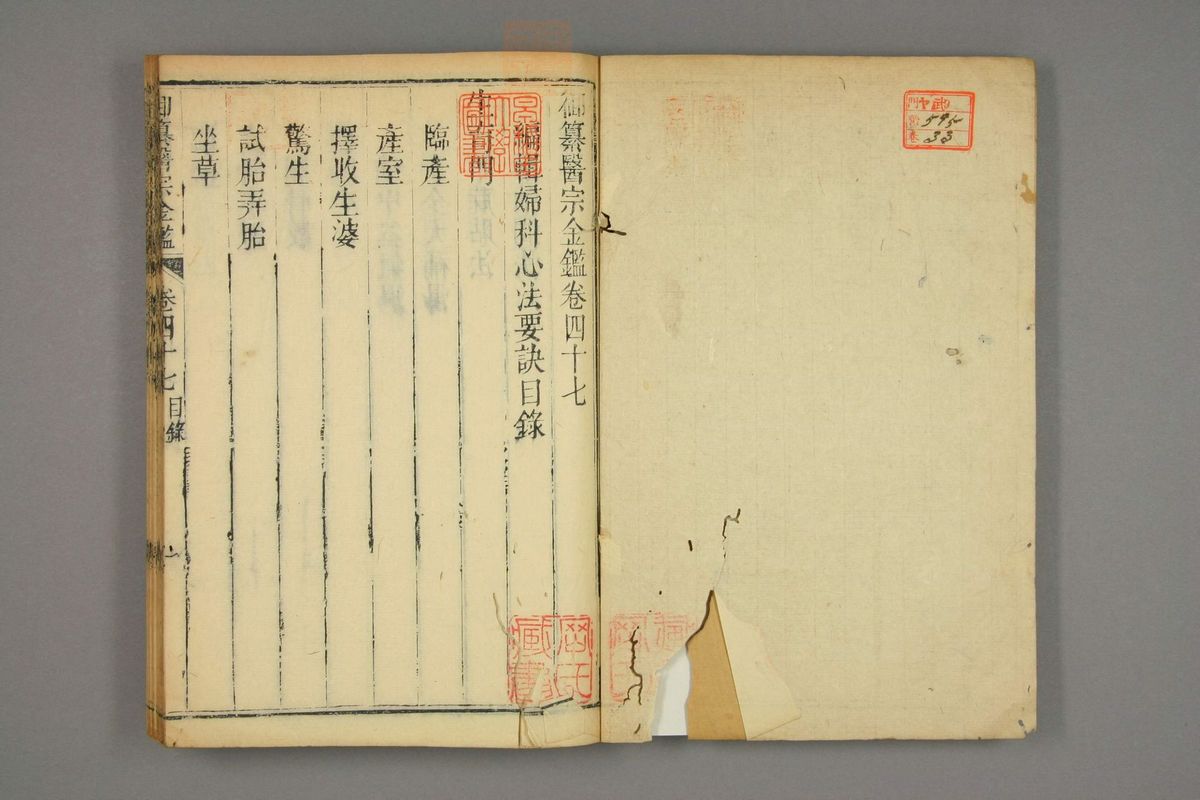 御纂醫宗金鑑卷四十七
編輯婦科心法要訣目錄
生育門
臨產
產室
擇收生婆
驚生
試胎弄胎
坐草
御纂醫宗金鑑
卷四十七
目錄
一
595
33
藏書